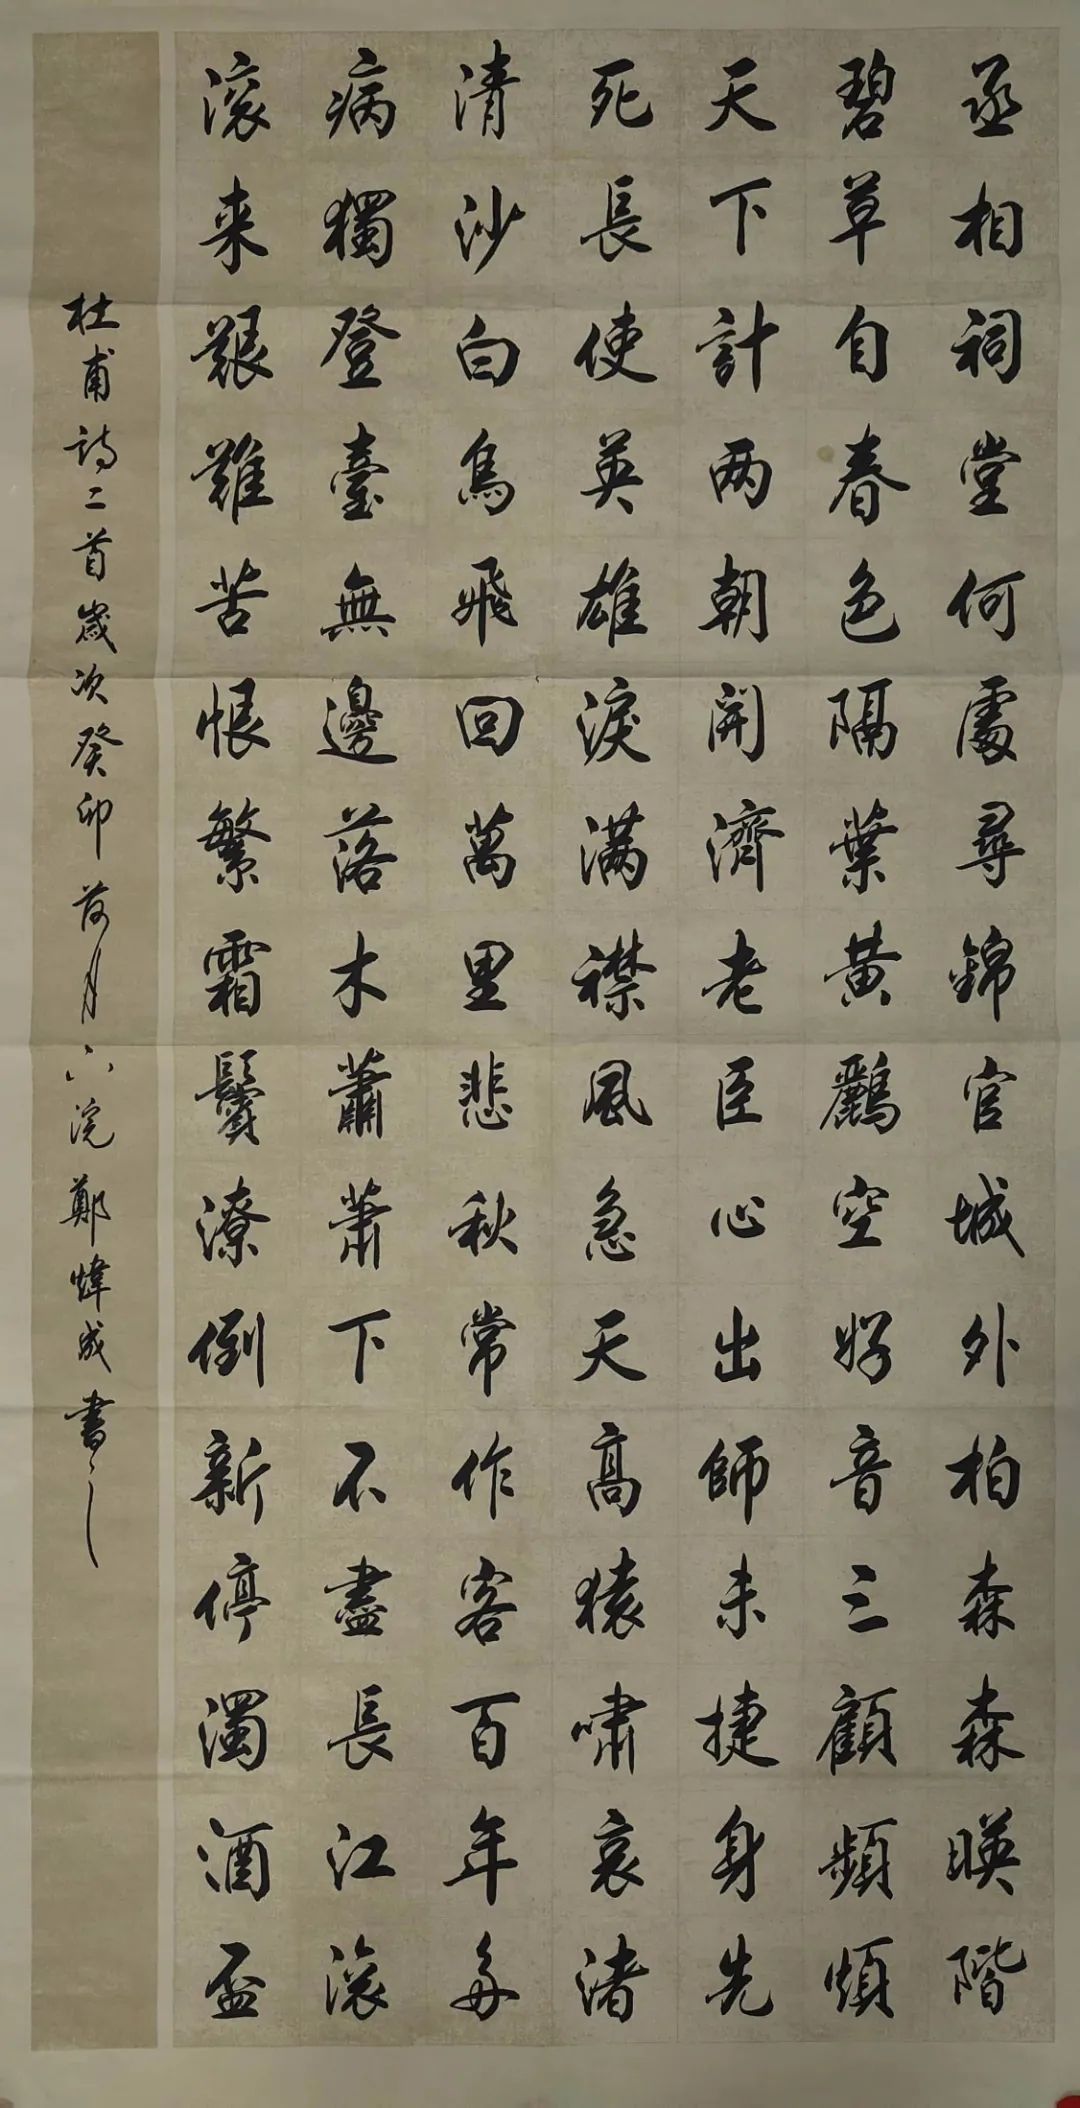 丞相祠堂何處尋錦官城外柏森森暎階
碧草自春色隔葉黃鸝空好音三顧頻煩
天下計两朝開濟老臣心出師未捷身先
死長使英雄淚滿襟風急天高猿嘯哀渚
清沙白鳥飛回萬里悲秋常作客百年多
病獨登臺無邊落木蕭蕭下不盡長江滚
滚来艱難苦恨繁霜鬢潦倒新停濁酒盃
杜甫詩二首歲次癸卯荷月下浣鄭煒成書之